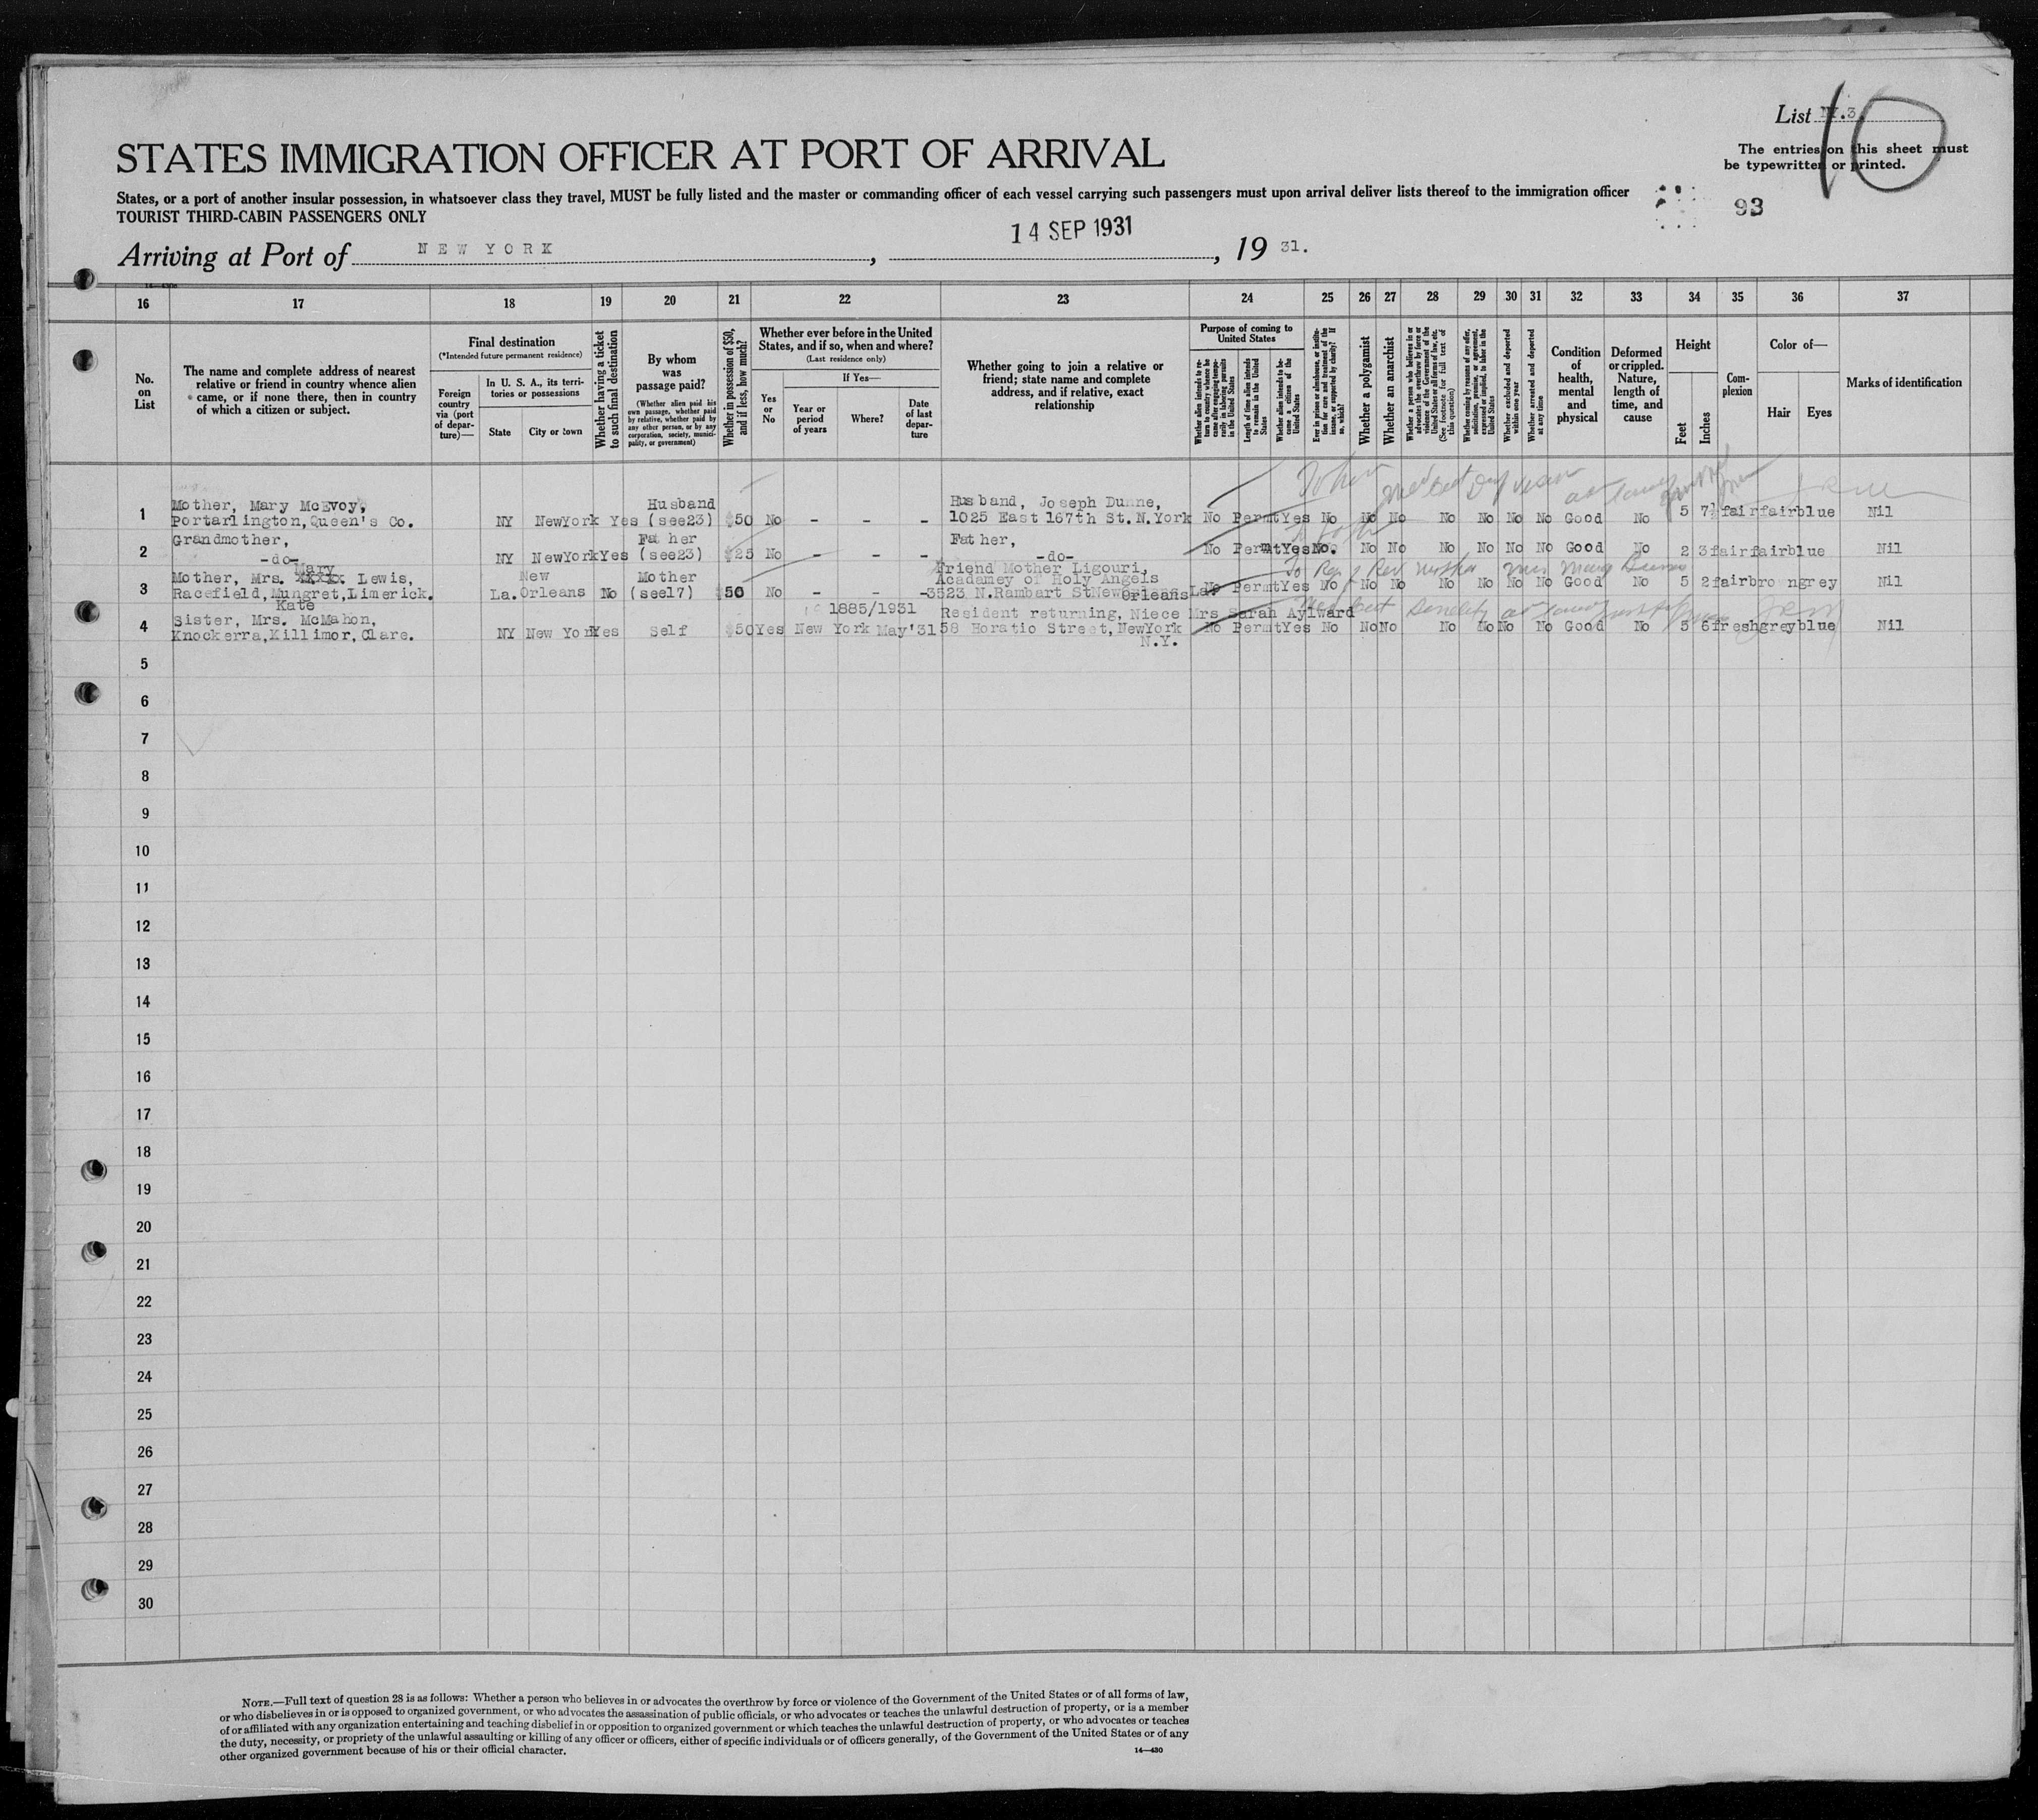 List IV.3.
10
The entries on this sheet must
be typewritten or printed.
STATES IMMIGRATION OFFICER AT PORT OF ARRIVAL
States, or a port of another insular possession, in whatsoever class they travel, MUST be fully listed and the master or commanding officer of each vessel carrying such passengers must upon arrival deliver lists thereof to the immigration officer
TOURIST THIRD-CABIN PASSENGERS ONLY
93
14 SEP 1931
Arriving at Port of NEW YORK, , 19 31.
16 17 18 19 20 21 22 23 24 25 26 27 28 29 30 31 32 33 34 35 36 37
No.
on
List
The name and complete address of nearest
relative or friend in country whence alien
came, or if none there, then in country
of which a citizen or subject.
Final destination
(*Intended future permanent residence)
Foreign
country
via (port
of depar-
ture)—
In U. S. A., its terri-
tories or possessions
State
City or town
Whether having a ticket
to such final destination
By whom
was
passage paid?
(Whether alien paid his
own passage, whether paid
by relative, whether paid by
any other person, or by any
corporation, society, munici-
pality, or government)
Whether in possession of $50,
and if less, how much?
Whether ever before in the United
States, and if so, when and where?
(Last residence only)
Yes
or
No
If Yes—
Year or
period
of years
Where?
Date
of last
depar-
ture
Whether going to join a relative or
friend; state name and complete
address, and if relative, exact
relationship
Purpose of coming to
United States
Whether alien intends to re-
turn to country whence he
came after engaging tempo-
rarily in laboring pursuits
in the United States
Length of time alien intends
to remain in the United
States
Whether alien intends to be-
come a citizen of the
United States
Ever in prison or almshouse, or institu-
tion for care and treatment of the
insane, or supported by charity? If
so, which?
Whether a polygamist
Whether an anarchist
Whether a person who believes in or
advocates the overthrow by force or
violence of the Government of the
United States or all forms of law, etc.
(See footnote for full text of
this question)
Whether coming by reasons of any offer,
solicitation, promise, or agreement,
expressed or implied, to labor in the
United States
Whether excluded and deported
within one year
Whether arrested and deported
at any time
Condition
of
health,
mental
and
physical
Deformed
or crippled.
Nature,
length of
time, and
cause
Height
Feet
Inches
Com-
plexion
Color of—
Hair
Eyes
Marks of identification
Mother, Mary McEvoy, Husband Husband, Joseph Dunne,
1 Portarlington, Queen's Co. NY NewYork Yes (see23) $50 No - - - 1025 East 167th St. N.York No Permt Yes No No No No No No No Good No 5 7½ fair fair blue Nil
Grandmother, Father Father,
2 -do- NY NewYork Yes (see23) $25 No - - - -do- No Permt Yes No. No No No No No No Good No 2 3 fair fair blue Nil
Mary New Friend Mother Ligouri,
Mother, Mrs. xxxxx Lewis, Mother Acadamey of Holy Angels
3 Racefield, Mungret, Limerick. La. Orleans No (see17) $50 No - - - 3523 N.Rambart St New Orleans La. No Permt Yes No No No No No No No Good No 5 2 fair brown grey Nil
Kate 1885/1931
Sister, Mrs. McMahon, Resident returning, Niece Mrs Sarah Aylward
4 Knockerra, Killimor, Clare. NY New York Yes Self $50 Yes New York May'31 58 Horatio Street, NewYork No Permt Yes No No No No No No No Good No 5 6 fresh grey blue Nil
N.Y.
5
6
7
8
9
10
11
12
13
14
15
16
17
18
19
20
21
22
23
24
25
26
27
28
29
30
NOTE.—Full text of question 28 is as follows: Whether a person who believes in or advocates the overthrow by force or violence of the Government of the United States or of all forms of law,
or who disbelieves in or is opposed to organized government, or who advocates the assassination of public officials, or who advocates or teaches the unlawful destruction of property, or is a member
of or affiliated with any organization entertaining and teaching disbelief in or opposition to organized government or which teaches the unlawful destruction of property, or who advocates or teaches
the duty, necessity, or propriety of the unlawful assaulting or killing of any officer or officers, either of specific individuals or of officers generally, of the Government of the United States or of any
other organized government because of his or their official character.
14—430